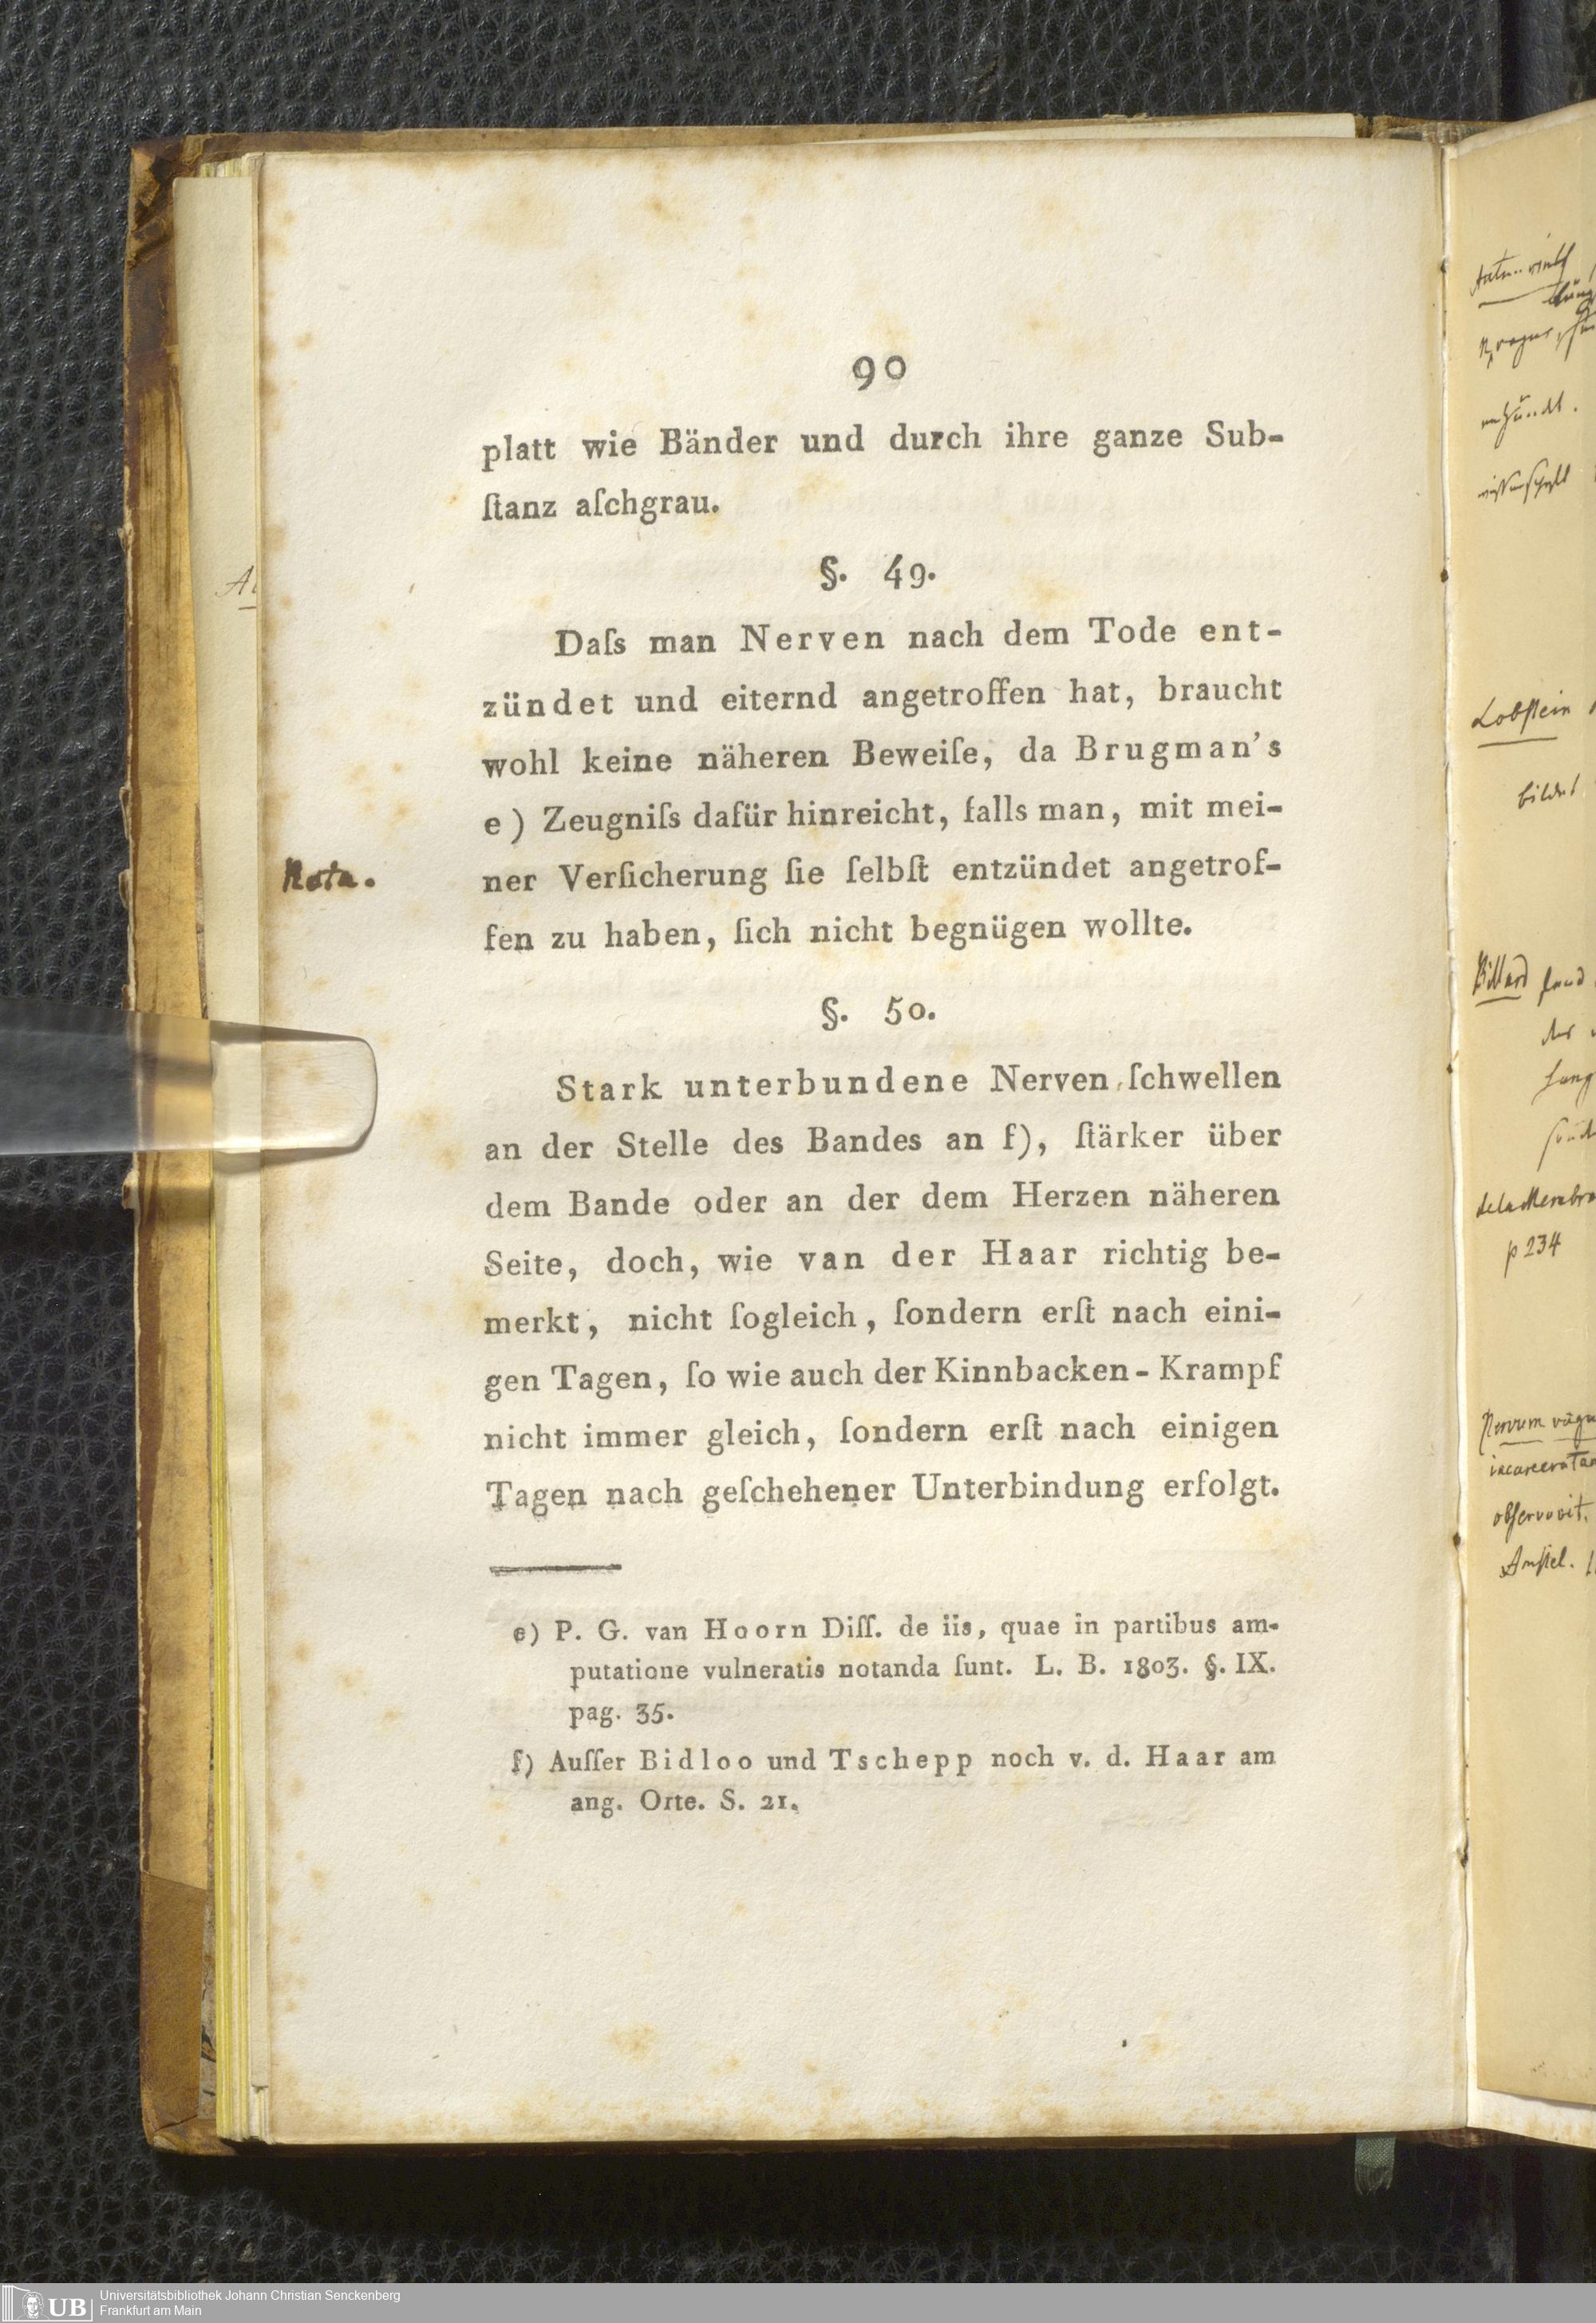 90
platt wie Bänder und durch ihre ganze Sub-
ſtanz aſchgrau.
§. 49.
Daſs man Nerven nach dem Tode ent-
zündet und eiternd angetroffen hat, braucht
wohl keine näheren Beweiſe, da Brugman's
e) Zeugniſs dafür hinreicht, falls man, mit mei-
Nota.
ner Verſicherung ſie ſelbſt entzündet angetrof-
fen zu haben, ſich nicht begnügen wollte.
§. 50.
Stark unterbundene Nerven ſchwellen
an der Stelle des Bandes an f), ſtärker über
dem Bande oder an der dem Herzen näheren
Seite, doch, wie van der Haar richtig be-
merkt, nicht ſogleich, ſondern erſt nach eini-
gen Tagen, ſo wie auch der Kinnbacken-Krampf
nicht immer gleich, ſondern erſt nach einigen
Tagen nach geſchehener Unterbindung erfolgt.
e) P. G. van Hoorn Diſſ. de iis, quae in partibus am-
putatione vulneratis notanda ſunt. L. B. 1803. §. IX.
pag. 35.
f) Auſſer Bidloo und Tschepp noch v. d. Haar am
ang. Orte. S. 21.
Lobstein
bildet
Billard fand
der
p 234
Nervum
observavit.
Amstel.
UB
Universitätsbibliothek Johann Christian Senckenberg
Frankfurt am Main